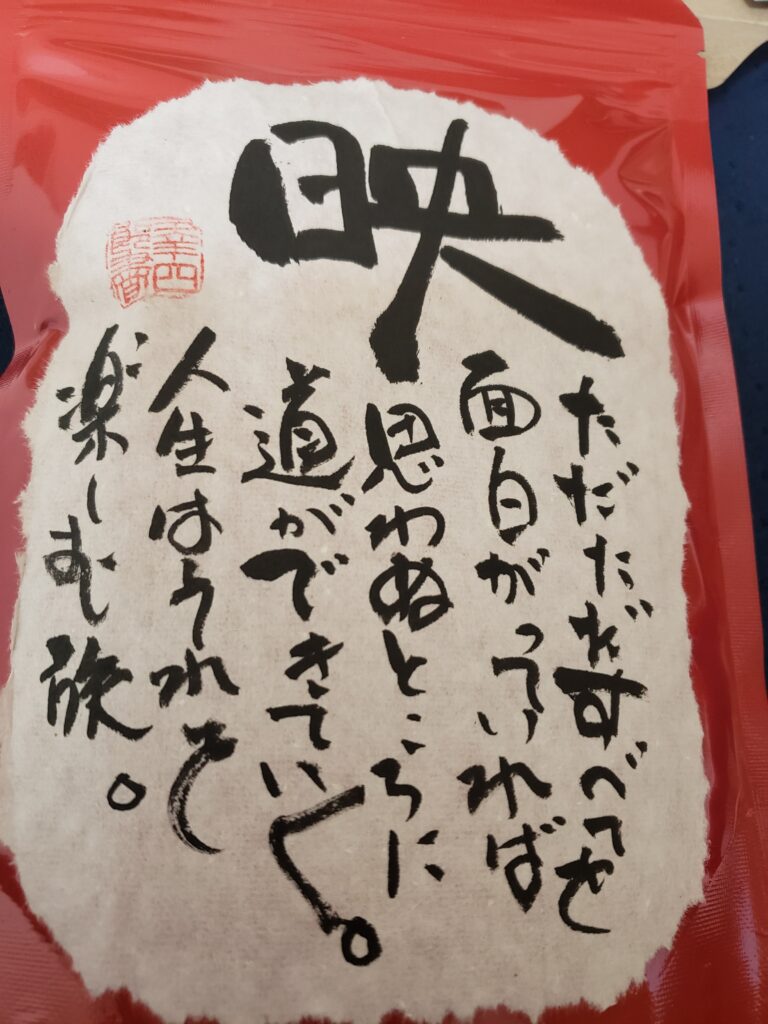 映
ただただすべてを
面白がっていれば
思わぬところに
道ができていく。
人生はそれを
楽しむ旅。